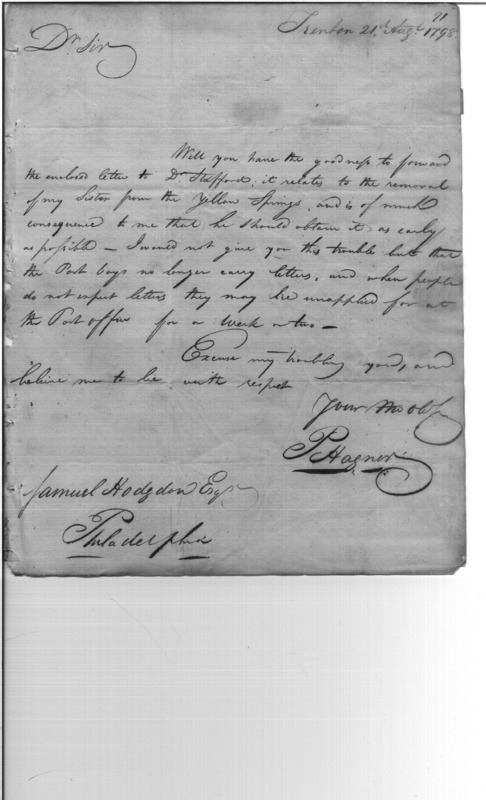 91
Trenton 21st Augt 1798
Dr Sir
Will you have the goodness to forward
the enclosed letter to Dr Stafford, it relates to the removal
of my Sister from the Yellow Springs, and is of much
consequence to me that he should obtain it as early
as possible — I would not give you this trouble but that
the Post boys no longer carry letters, and when people
do not expect letters they may be unapplied for at
the Post office for a week or two —
Excuse my troubling you, and
believe me to be with respect
Your Mo Ob
P Hagner
Samuel Hodgdon Esqr
Philadelphia